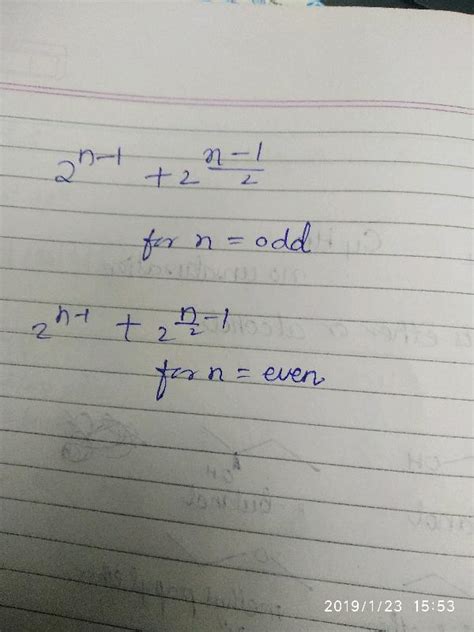 2^{n-1} + 2^{\frac{n-1}{2}}
for n = odd
2^{n-1} + 2^{\frac{n}{2}-1}
for n = even
2019/1/23 15:53